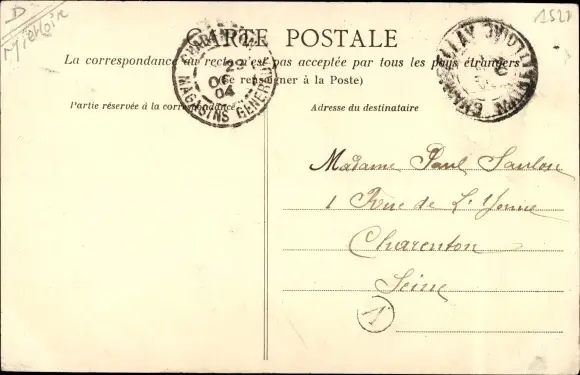 D
1521
CARTE POSTALE
La correspondance au recto n'est pas acceptée par tous les pays étrangers
(Se renseigner à la Poste)
Partie réservée à la correspondance
Adresse du destinataire
CHARENTON
23
OC
04
MAGASINS GENERAUX
Madame Paul Saulou
1 Rue de L'Yonne
Charenton
Seine
1